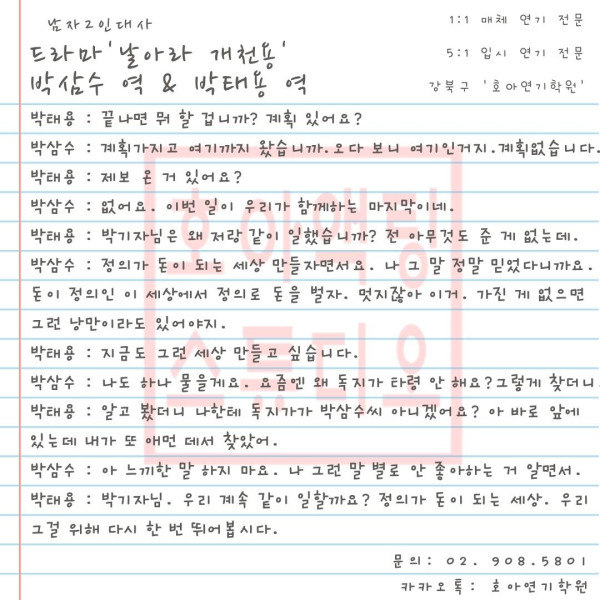 남자2인대사
1:1 매체 연기 전문
드라마'날아라 개천용'
5:1 입시 연기 전문
박삼수 역 & 박태용 역
강북구 '호아연기학원'
박태용 : 끝나면 뭐 할 겁니까? 계획 있어요?
박삼수 : 계획가지고 여기까지 왔습니까.오다 보니 여기인거지.계획없습니다.
박태용 : 제보 온 거 있어요?
박삼수 : 없어요. 이번 일이 우리가 함께하는 마지막이네.
박태용 : 박기자님은 왜 저랑 같이 일했습니까? 전 아무것도 준 게 없는데.
박삼수 : 정의가 돈이 되는 세상 만들자면서요. 나 그 말 정말 믿었다니까요.
돈이 정의인 이 세상에서 정의로 돈을 벌자. 멋지잖아 이거. 가진 게 없으면
그런 낭만이라도 있어야지.
박태용 : 지금도 그런 세상 만들고 싶습니다.
박삼수 : 나도 하나 물을게요. 요즘엔 왜 독지가 타령 안 해요?그렇게 찾더니.
박태용 : 알고 봤더니 나한테 독지가가 박삼수씨 아니겠어요? 아 바로 앞에
있는데 내가 또 애먼 데서 찾았어.
박삼수 : 아 느끼한 말 하지 마요. 나 그런 말 별로 안 좋아하는 거 알면서.
박태용 : 박기자님. 우리 계속 같이 일할까요? 정의가 돈이 되는 세상. 우리
그걸 위해 다시 한 번 뛰어봅시다.
문의: 02. 908.5801
카카오톡: 호아연기학원
호아액팅
스튜디오